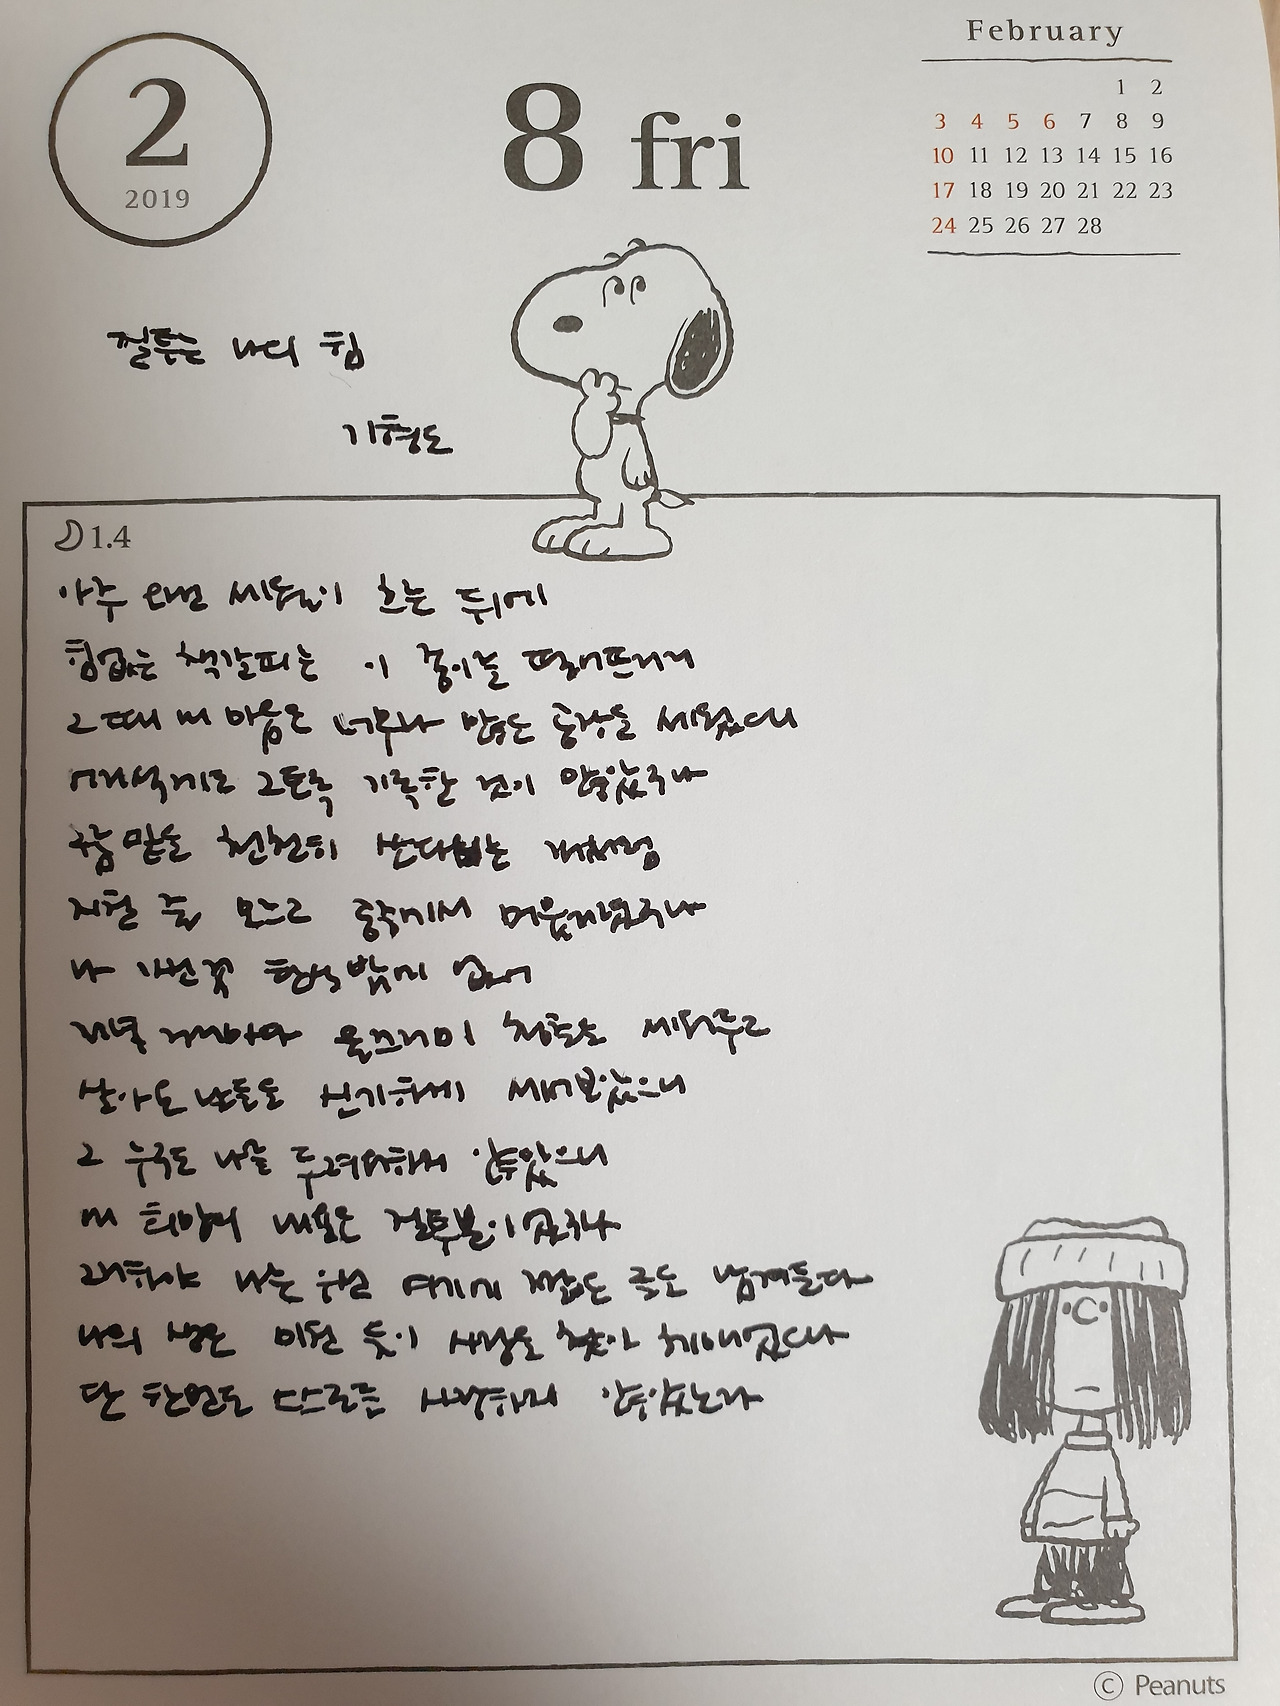 February
2
2019
8 fri
1 2
3 4 5 6 7 8 9
10 11 12 13 14 15 16
17 18 19 20 21 22 23
24 25 26 27 28
질투는 나의 힘
기형도
1.4
아주 오랜 세월이 흐른 뒤에
힘없는 책갈피는 이 종이를 떨어뜨리리
그때 내 마음은 너무나 많은 공장을 세웠으니
어리석게도 그토록 기록할 것이 많았구나
구름 밑을 천천히 쏘다니는 개처럼
지칠 줄 모르고 공중에서 머뭇거렸구나
나 가진 것 탄식밖에 없어
저녁 거리마다 물끄러미 청춘을 세워두고
살아온 날들을 신기하게 세어보았으니
그 누구도 나를 두려워하지 않았으니
내 희망의 내용은 질투뿐이었구나
그리하여 나는 우선 여기에 짧은 글을 남겨둔다
나의 생은 미친 듯이 사랑을 찾아 헤매었으나
단 한번도 스스로를 사랑하지 않았노라
© Peanuts